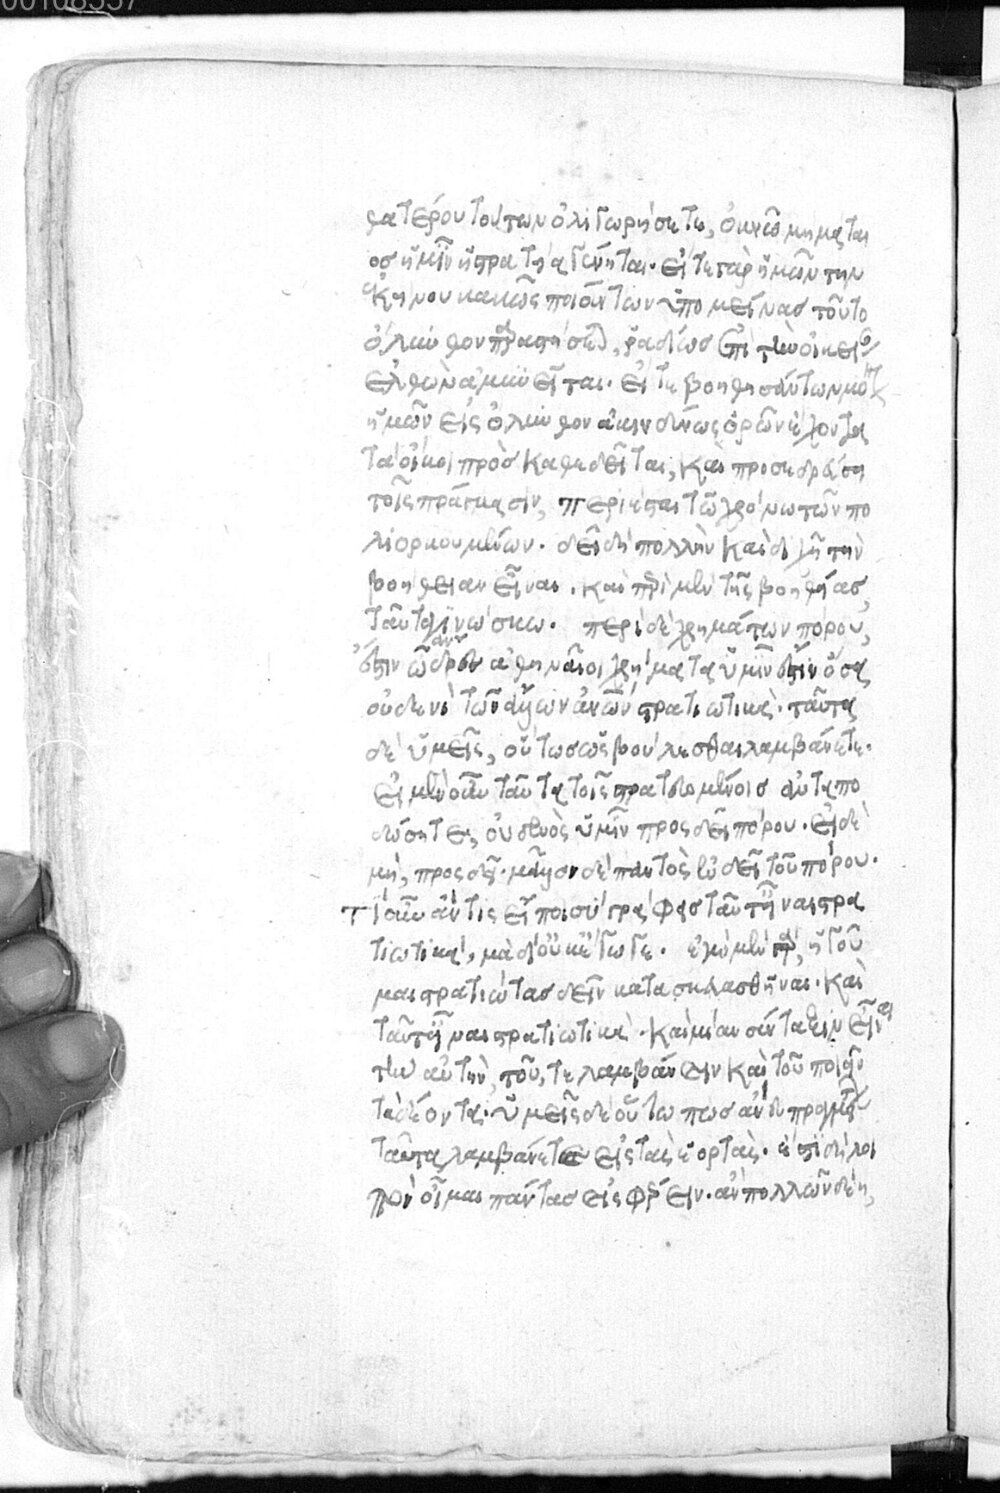 00108337
θατέρου τούτων ὀλιγωρήσετε, ὀκνῶ μὴ μάται
ος ἡμῖν ἡ στρατεία γένηται. εἴτε γὰρ ἡμῶν τὴν
ἐκείνου κακῶς ποιούντων ὑπομείνας τοῦτο
ὄλυνθον παραστήσεται, ῥαδίως ἐπὶ τὴν οἰκείαν
ἐλθὼν ἀμυνεῖται. εἴτε βοηθησάντων μόνον
ἡμῶν εἰς ὄλυνθον ἀκινδύνως ὁρῶν ἔχοντα
τὰ οἴκοι προσκαθεδεῖται, καὶ προσεδρεύσει
τοῖς πράγμασιν, περιέσται τῷ χρόνῳ τῶν πο
λιορκουμένων. δεῖ δὴ πολλὴν καὶ διχῇ τὴν
βοήθειαν εἶναι. καὶ περὶ μὲν τῆς βοηθείας
ταῦτα γινώσκω. περὶ δὲ χρημάτων πόρου,
ἔστιν ὦ ἄνδρες ἀθηναῖοι χρήματα ὑμῖν ἐστὶν ὅσα
οὐδενὶ τῶν ἄλλων ἀνθρώπων στρατιωτικά. ταῦτα
δὲ ὑμεῖς, οὕτως ὡς βούλεσθαι λαμβάνετε.
εἰ μὲν οὖν ταῦτα τοῖς στρατευομένοις ἀπο
δώσητε, οὐδενὸς ὑμῖν προσδεῖ πόρου. εἰ δὲ
μή, προσδεῖ. μᾶλλον δὲ παντὸς ἐνδεῖ τοῦ πόρου.
τί οὖν ἄν τις εἴποι σὺ γράφεις ταῦτ' εἶναι στρα
τιωτικά, μὰ δί' οὐκ ἔγωγε. ἐγὼ μὲν γὰρ, ἡγοῦ
μαι στρατιώτας δεῖν κατασκευασθῆναι. καὶ
ταῦτ' εἶναι στρατιωτικὰ. καὶ μίαν σύνταξιν εἶναι
τὴν αὐτὴν, τοῦ, τε λαμβάνειν καὶ τοῦ ποιεῖν
τὰ δέοντα. ὑμεῖς δὲ οὕτω πως ἄνευ πραγμάτων
ταῦτα λαμβάνετε εἰς τὰς ἑορτὰς. ἔστι δὴ λοι
πὸν οἶμαι πάντας εἰσφέρειν. ἂν πολλῶν δέῃ,